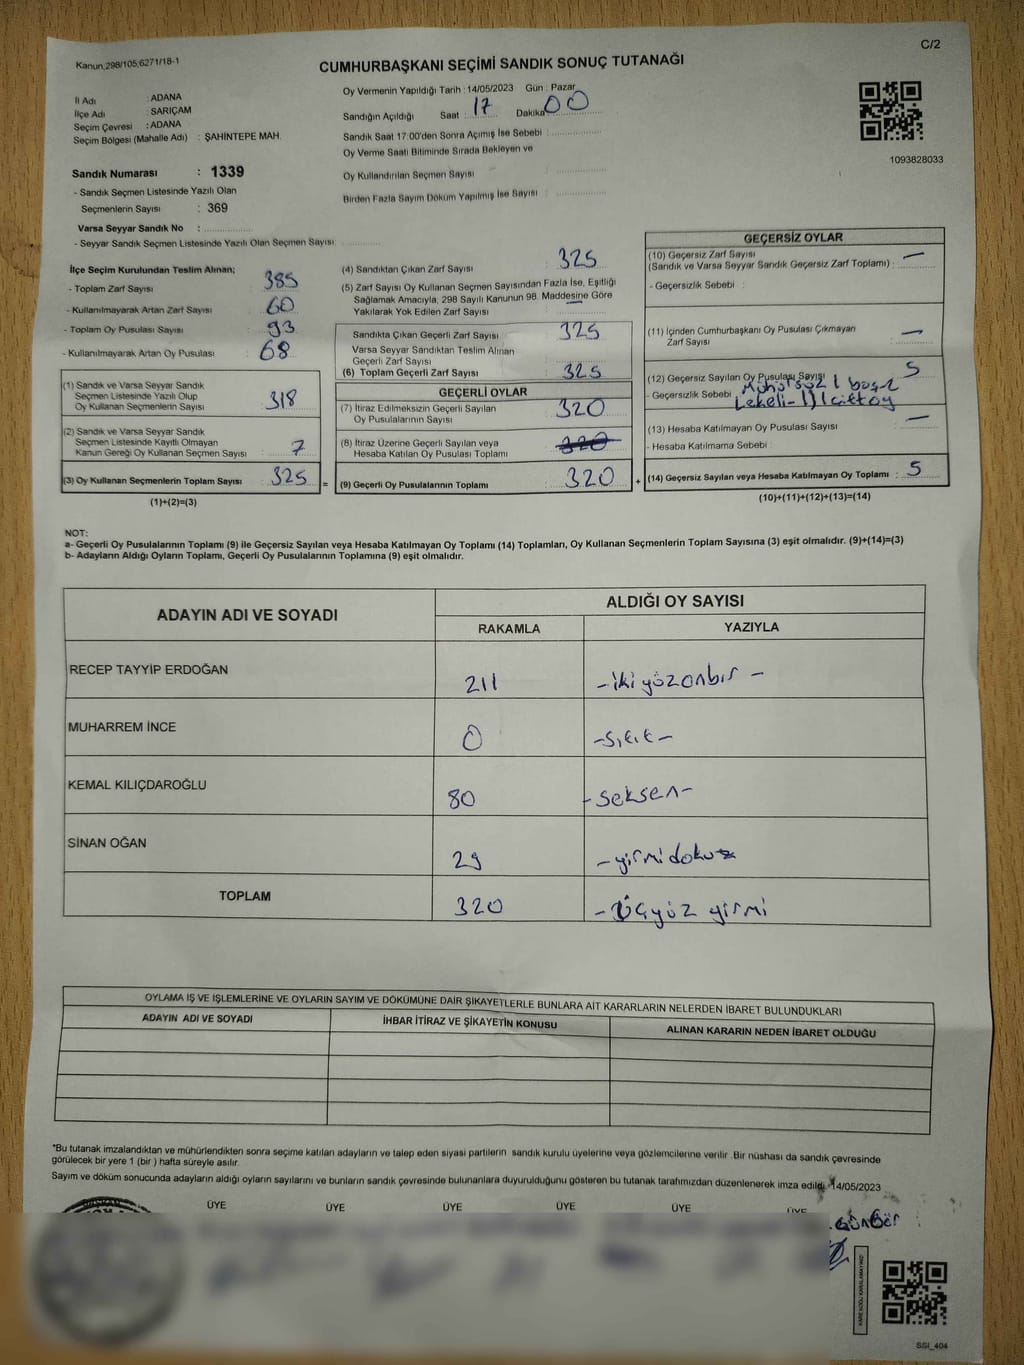 Kanun,298/105;6271/18-1
C/2
CUMHURBAŞKANI SEÇİMİ SANDIK SONUÇ TUTANAĞI
İl Adı : ADANA
İlçe Adı : SARIÇAM
Seçim Çevresi : ADANA
Seçim Bölgesi (Mahalle Adı) : ŞAHİNTEPE MAH.
Sandık Numarası : 1339
- Sandık Seçmen Listesinde Yazılı Olan
Seçmenlerin Sayısı : 369
Varsa Seyyar Sandık No :
- Seyyar Sandık Seçmen Listesinde Yazılı Olan Seçmen Sayısı
Oy Vermenin Yapıldığı Tarih : 14/05/2023 Gün : Pazar
Sandığın Açıldığı Saat 17 Dakika 00
Sandık Saat 17:00'den Sonra Açımış İse Sebebi :
Oy Verme Saati Bitiminde Sırada Bekleyen ve
Oy Kullandırılan Seçmen Sayısı :
Birden Fazla Sayım Döküm Yapılmış İse Sayısı :
1093828033
İlçe Seçim Kurulundan Teslim Alınan;
- Toplam Zarf Sayısı : 385
- Kullanılmayarak Artan Zarf Sayısı : 60
- Toplam Oy Pusulası Sayısı : 93
- Kullanılmayarak Artan Oy Pusulası : 68
(1) Sandık ve Varsa Seyyar Sandık
Seçmen Listesinde Yazılı Olup
Oy Kullanan Seçmenlerin Sayısı : 318
(2) Sandık ve Varsa Seyyar Sandık
Seçmen Listesinde Kayıtlı Olmayan
Kanun Gereği Oy Kullanan Seçmen Sayısı : 7
(3) Oy Kullanan Seçmenlerin Toplam Sayısı : 325 =
(1)+(2)=(3)
(4) Sandıktan Çıkan Zarf Sayısı : 325
(5) Zarf Sayısı Oy Kullanan Seçmen Sayısından Fazla İse, Eşitliği
Sağlamak Amacıyla, 298 Sayılı Kanunun 98. Maddesine Göre
Yakılarak Yok Edilen Zarf Sayısı : —
Sandıkta Çıkan Geçerli Zarf Sayısı : 325
Varsa Seyyar Sandıktan Teslim Alınan
Geçerli Zarf Sayısı
(6) Toplam Geçerli Zarf Sayısı : 325
GEÇERLİ OYLAR
(7) İtiraz Edilmeksizin Geçerli Sayılan
Oy Pusulalarının Sayısı : 320
(8) İtiraz Üzerine Geçerli Sayılan veya
Hesaba Katılan Oy Pusulası Toplamı : 320
(9) Geçerli Oy Pusulalarının Toplamı : 320 +
GEÇERSİZ OYLAR
(10) Geçersiz Zarf Sayısı
(Sandık ve Varsa Seyyar Sandık Geçersiz Zarf Toplamı) : —
- Geçersizlik Sebebi :
(11) İçinden Cumhurbaşkanı Oy Pusulası Çıkmayan
Zarf Sayısı : —
(12) Geçersiz Sayılan Oy Pusulası Sayısı : 5
- Geçersizlik Sebebi :
(13) Hesaba Katılmayan Oy Pusulası Sayısı : —
- Hesaba Katılmama Sebebi :
(14) Geçersiz Sayılan veya Hesaba Katılmayan Oy Toplamı : 5
(10)+(11)+(12)+(13)=(14)
NOT:
a- Geçerli Oy Pusulalarının Toplamı (9) ile Geçersiz Sayılan veya Hesaba Katılmayan Oy Toplamı (14) Toplamları, Oy Kullanan Seçmenlerin Toplam Sayısına (3) eşit olmalıdır. (9)+(14)=(3)
b- Adayların Aldığı Oyların Toplamı, Geçerli Oy Pusulalarının Toplamına (9) eşit olmalıdır.
ADAYIN ADI VE SOYADI ALDIĞI OY SAYISI
RAKAMLA YAZIYLA
RECEP TAYYİP ERDOĞAN 211 -ikiyüzonbir-
MUHARREM İNCE 0 -sıfır-
KEMAL KILIÇDAROĞLU 80 -seksen-
SİNAN OĞAN 29 -yirmidokuz
TOPLAM 320 -üçyüz yirmi
OYLAMA İŞ VE İŞLEMLERİNE VE OYLARIN SAYIM VE DÖKÜMÜNE DAİR ŞİKAYETLERLE BUNLARA AİT KARARLARIN NELERDEN İBARET BULUNDUKLARI
ADAYIN ADI VE SOYADI İHBAR İTİRAZ VE ŞİKAYETİN KONUSU ALINAN KARARIN NEDEN İBARET OLDUĞU
*Bu tutanak imzalandıktan ve mühürlendikten sonra seçime katılan adayların ve talep eden siyasi partilerin sandık kurulu üyelerine veya gözlemcilerine verilir. Bir nüshası da sandık çevresinde
görülecek bir yere 1 (bir) hafta süreyle asılır.
Sayım ve döküm sonucunda adayların aldığı oyların sayılarını ve bunların sandık çevresinde bulunanlara duyurulduğunu gösteren bu tutanak tarafımızdan düzenlenerek imza edildi. 14/05/2023
ÜYE ÜYE ÜYE ÜYE ÜYE ÜYE
KARE KODU KARALAMAYINIZ!
SSI_404